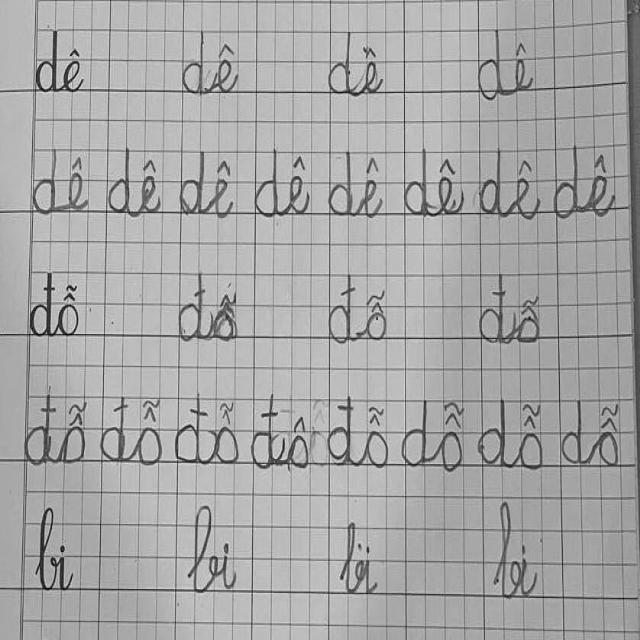 dê dê dê dê
dê dê dê dê dê dê dê dê
đỗ đỗ đỗ đỗ
đỗ đỗ đỗ đô đỗ dỗ dỗ dỗ
bi bi bi bi